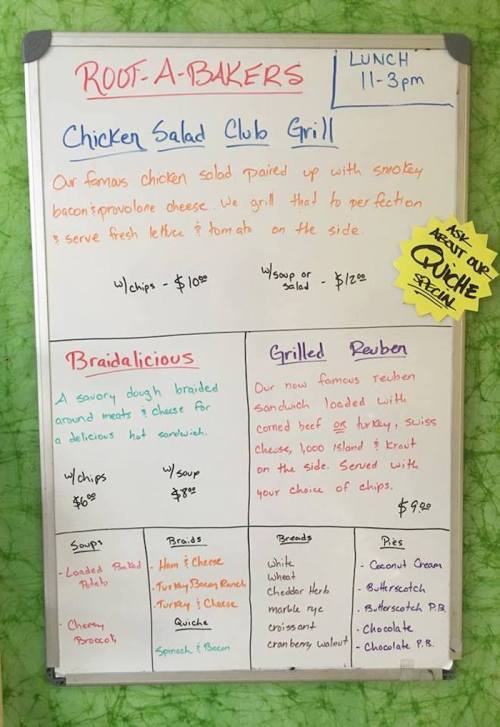 ROOT-A-BAKERS
LUNCH
11-3pm
Chicken Salad Club Grill
Our famous chicken salad paired up with smokey
bacon & provolone cheese. We grill that to perfection
& serve fresh lettuce & tomato on the side.
w/chips - $10.00
w/soup or
salad - $12.00
ASK
ABOUT OUR
QUICHE
SPECIAL
Braidalicious
A savory dough braided
around meats & cheese for
a delicious hot sandwich.
w/chips
$6.00
w/soup
$8.00
Grilled Reuben
Our now famous reuben
sandwich loaded with
corned beef or turkey, swiss
cheese, 1,000 island & kraut
on the side. Served with
your choice of chips.
$9.00
Soups
- Loaded Baked
Potato
- Cheesy
Broccoli
Braids
- Ham & Cheese
- Turkey Bacon Ranch
- Turkey & Cheese
Quiche
Spinach & Bacon
Breads
white
wheat
cheddar herb
marble rye
croissant
cranberry walnut
Pies
- Coconut Cream
- Butterscotch
- Butterscotch P.B.
- Chocolate
- Chocolate P.B.